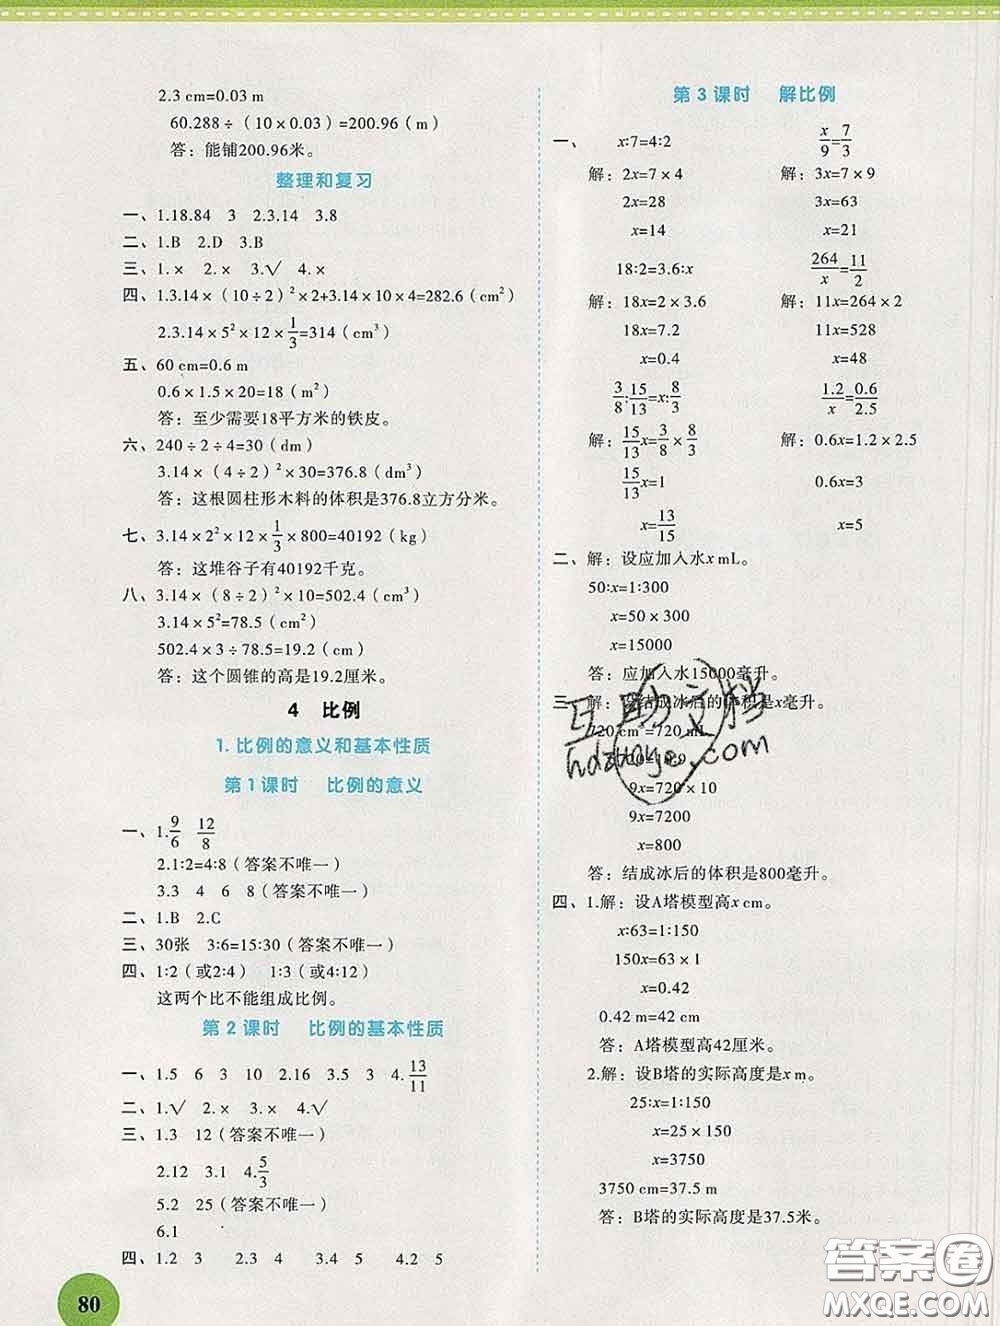 2.3 cm=0.03 m
60.288÷(10×0.03)=200.96(m)
答：能铺200.96米。
整理和复习
一、1.18.84 3 2.3.14 3.8
二、1.B 2.D 3.B
三、1.× 2.× 3.√ 4.×
四、1.3.14×(10÷2)²×2+3.14×10×4=282.6(cm²)
2.3.14×5²×12×1/3=314(cm³)
五、60 cm=0.6 m
0.6×1.5×20=18(m²)
答：至少需要18平方米的铁皮。
六、240÷2÷4=30(dm)
3.14×(4÷2)²×30=376.8(dm³)
答：这根圆柱形木料的体积是376.8立方分米。
七、3.14×2²×12×1/3×800=40192(kg)
答：这堆谷子有40192千克。
八、3.14×(8÷2)²×10=502.4(cm³)
3.14×5²=78.5(cm²)
502.4×3÷78.5=19.2(cm)
答：这个圆锥的高是19.2厘米。
4 比例
1.比例的意义和基本性质
第1课时 比例的意义
一、1.9/6 12/8
2.1:2=4:8(答案不唯一)
3.3 4 6 8(答案不唯一)
二、1.B 2.C
三、30张 3:6=15:30(答案不唯一)
四、1:2(或2:4) 1:3(或4:12)
这两个比不能组成比例。
第2课时 比例的基本性质
一、1.5 6 3 10 2.16 3.5 3 4.13/11
二、1.√ 2.× 3.× 4.√
三、1.3 12(答案不唯一)
2.12 3.1 4.5/3
5.2 25(答案不唯一)
6.1
四、1.2 3 2.3 4 3.4 5 4.2 5
80
第3课时 解比例
一、 x:7=4:2 x/9=7/3
解：2x=7×4 解：3x=7×9
2x=28 3x=63
x=14 x=21
18:2=3.6:x 264/x=11/2
解：18x=2×3.6 解：11x=264×2
18x=7.2 11x=528
x=0.4 x=48
3/8:15/13=x:8/3 1.2/x=0.6/2.5
解：15/13x=3/8×8/3 解：0.6x=1.2×2.5
15/13x=1 0.6x=3
x=13/15 x=5
二、解：设应加入水x mL。
50:x=1:300
x=50×300
x=15000
答：应加入水15000毫升。
三、解：设结成冰后的体积是x毫升。
720 cm³=720 mL
9x=720×10
9x=7200
x=800
答：结成冰后的体积是800毫升。
四、1.解：设A塔模型高x cm。
x:63=1:150
150x=63×1
x=0.42
0.42 m=42 cm
答：A塔模型高42厘米。
2.解：设B塔的实际高度是x m。
25:x=1:150
x=25×150
x=3750
3750 cm=37.5 m
答：B塔的实际高度是37.5米。
互助文档
hdzuoye.com
答案圈
MXQE.COM